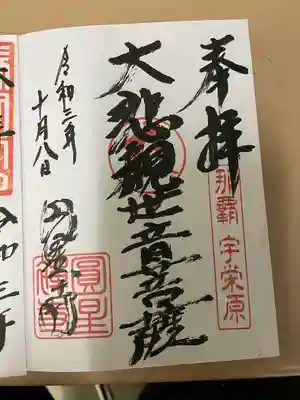 奉拝
那覇 字栄原
大悲観世音菩薩
令和三年
十月八日
圓星寺
令和三年